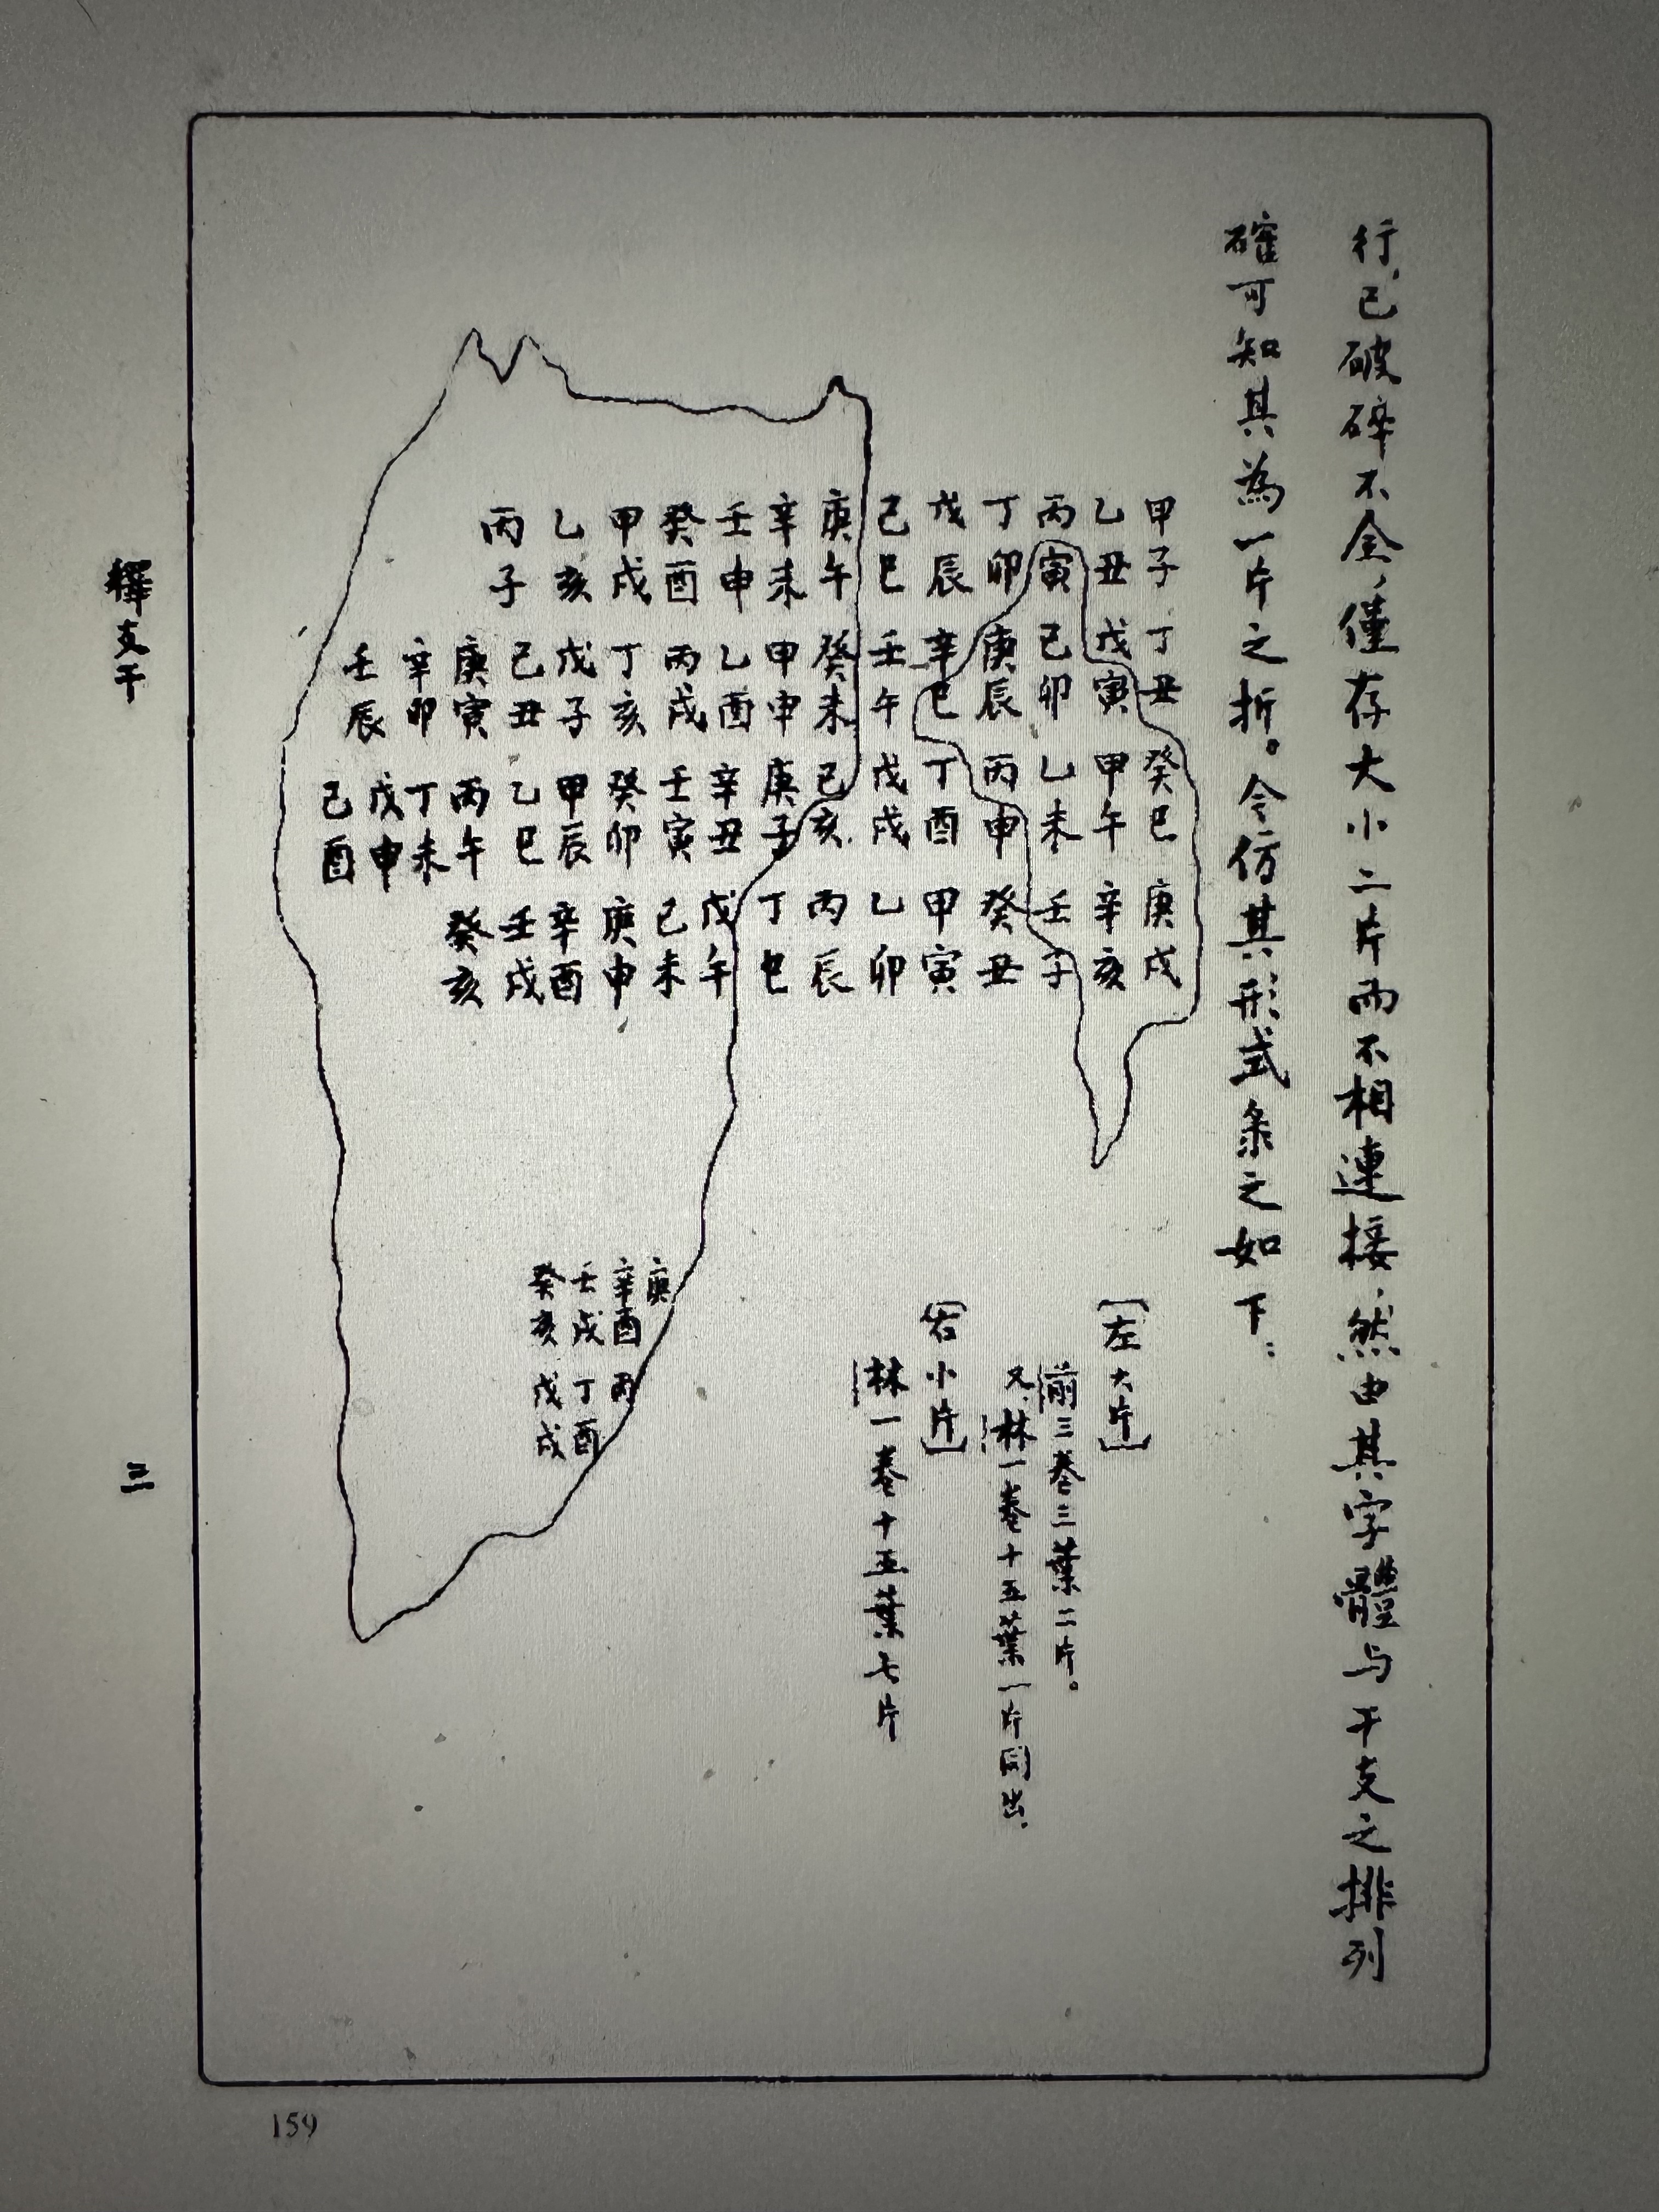 行,已破碎不全,僅存大小二片而不相連接,然由其字體与干支之排列
確可知其為一片之折。今仿其形式彔之如下:
甲子丁丑癸巳庚戌
乙丑戊寅甲午辛亥
丙寅己卯乙未壬子
丁卯庚辰丙申癸丑
戊辰辛巳丁酉甲寅
己巳壬午戊戌乙卯
庚午癸未己亥丙辰
辛未甲申庚子丁巳
壬申乙酉辛丑戊午
癸酉丙戌壬寅己未
甲戌丁亥癸卯庚申
乙亥戊子甲辰辛酉
丙子己丑乙巳壬戌
庚寅丙午癸亥
辛卯丁未
壬辰戊申
己酉
庚
辛酉丙
壬戌丁酉
癸亥戊戌
[左大片]
前三卷三葉二片。
又,林一卷十五葉一片同出.
[右小片]
林一卷十五葉七片
釋支干
三
159